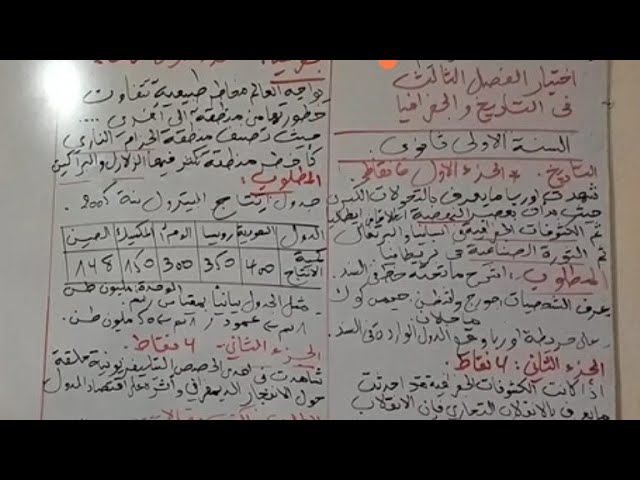 اختبار الفصل الثالث
في التاريخ والجغرافيا
السنة الاولى ثانوي.
التاريخ. * الجزء الاول
شهدت اوربا ما يعرف بالتحولات الكبرى
حيث بدأت بعصر النهضة انطلاقا من ايطاليا
ثم الكشوفات الجغرافية في اسبانيا والبرتغال
ثم الثورة الصناعية في بريطانيا
المطلوب: اشرح ما تحته خط في السند.
عرف الشخصيات: جورج واشنطن. جيمس كوك
ماجلان.
على خريطة اوربا وقع الدول الواردة في السند.
الجزء الثاني: 6 نقاط.
اذا كانت الكشوفات الجغرافية قد احدثت
ما يعرف بالانقلاب التجاري فإن الانقلاب
يواجه العالم مخاطر طبيعية تتفاوت
خطورتها من منطقة الى أخرى ....
حيث تصنف منطقة الحزام الناري
كأخطر منطقة تكثر فيها الزلازل والبراكين
المطلوب:
جدول إنتاج البترول سنة 2005.
الدول السعودية روسيا الو م أ المكسيك الصين
كمية الانتاج 400 350 300 150 148
الوحدة: مليون طن
مثل الجدول بيانيا بمقياس رسم.
1سم ← عمود / 1سم ← 50 مليون طن.
الجزء الثاني - 6 نقاط
شاهدت في احدى الحصص التلفزيونية حلقة
حول الانفجار الديمغرافي و أثره على اقتصاد الدول